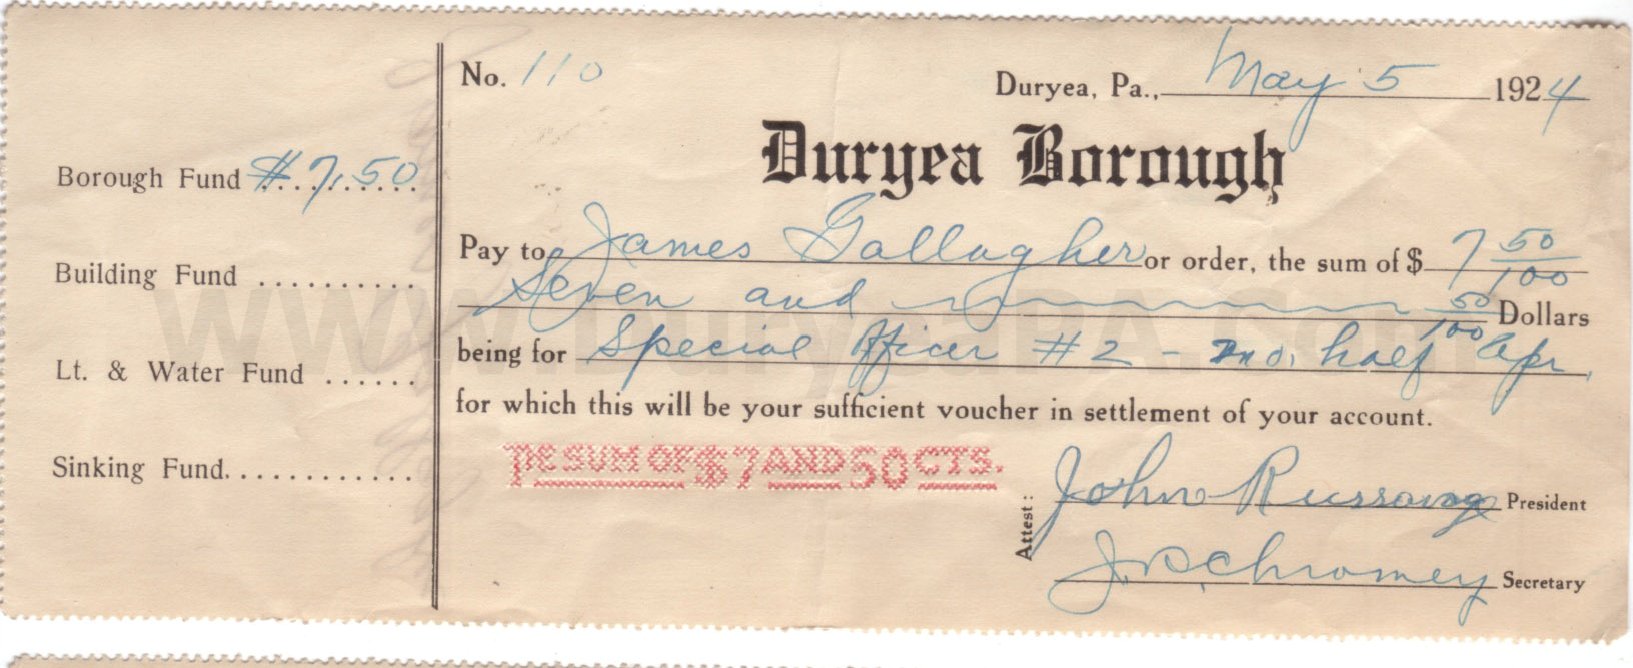 No. 110
Duryea, Pa., May 5 1924
Duryea Borough
Borough Fund $7.50
Pay to James Gallagher or order, the sum of $ 7 50/100
Building Fund ...........
Seven and 50/100 Dollars
being for Special Officer #2 - mo. half Apr.
Lt. & Water Fund ......
for which this will be your sufficient voucher in settlement of your account.
Sinking Fund............
THE SUM OF $7 AND 50 CTS.
Attest:
John President
Secretary
www.DuryeaPA.com